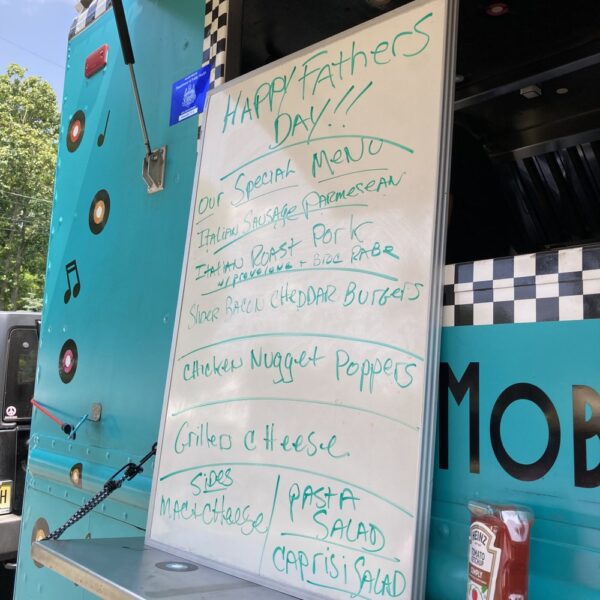 HAPPY FATHERS
DAY!!
OUR SPECIAL MENU
ITALIAN SAUSAGE PARMESEAN
ITALIAN ROAST PORK
w/ provolone + BROC RABE
SLIDER BACON CHEDDAR BURGERS
CHICKEN NUGGET POPPERS
GRILLED CHEESE
SIDES
MAC + CHEESE
PASTA
SALAD
CAPRISI SALAD
MOB
HEINZ
TOMATO
KETCHUP
SIMPLY